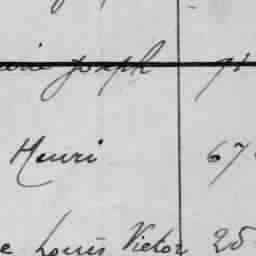 Joseph
Henri 67
Louis Victor 25